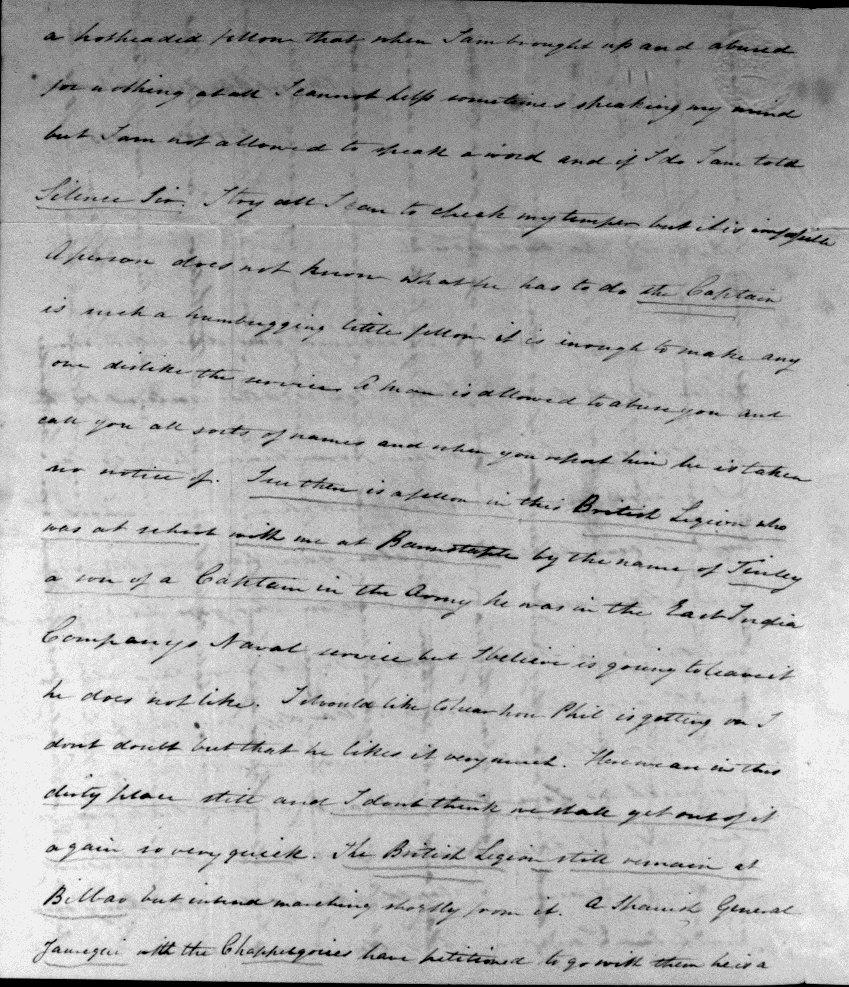 a hotheaded fellow that when I am brought up and abused
for nothing at all I cannot help sometimes speaking my mind
but I am not allowed to speak a word and if I do I am told
Silence Sir. I try all I can to check my temper but it is impossible
A person does not know what he has to do the Captain
is such a humbugging little fellow it is enough to make any
one dislike the service A man is allowed to abuse you and
call you all sorts of names and when you report him he is taken
no notice of. there is a fellow in this British Legion who
was at school with me at Barnstaple by the name of Tinley
a son of a Captain in the Army he was in the East India
Companys Naval service but I believe is going to leave it
he does not like. I should like to hear how Phil is getting on I
dont doubt but that he likes it very much. Here we are in this
dirty place still and I dont think we shall get out of it
again so very quick. The British Legion still remain at
Bilbao but intend marching shortly from it. A Spanish General
Jauregui with the Chappelgories have petitioned to go with them he is a